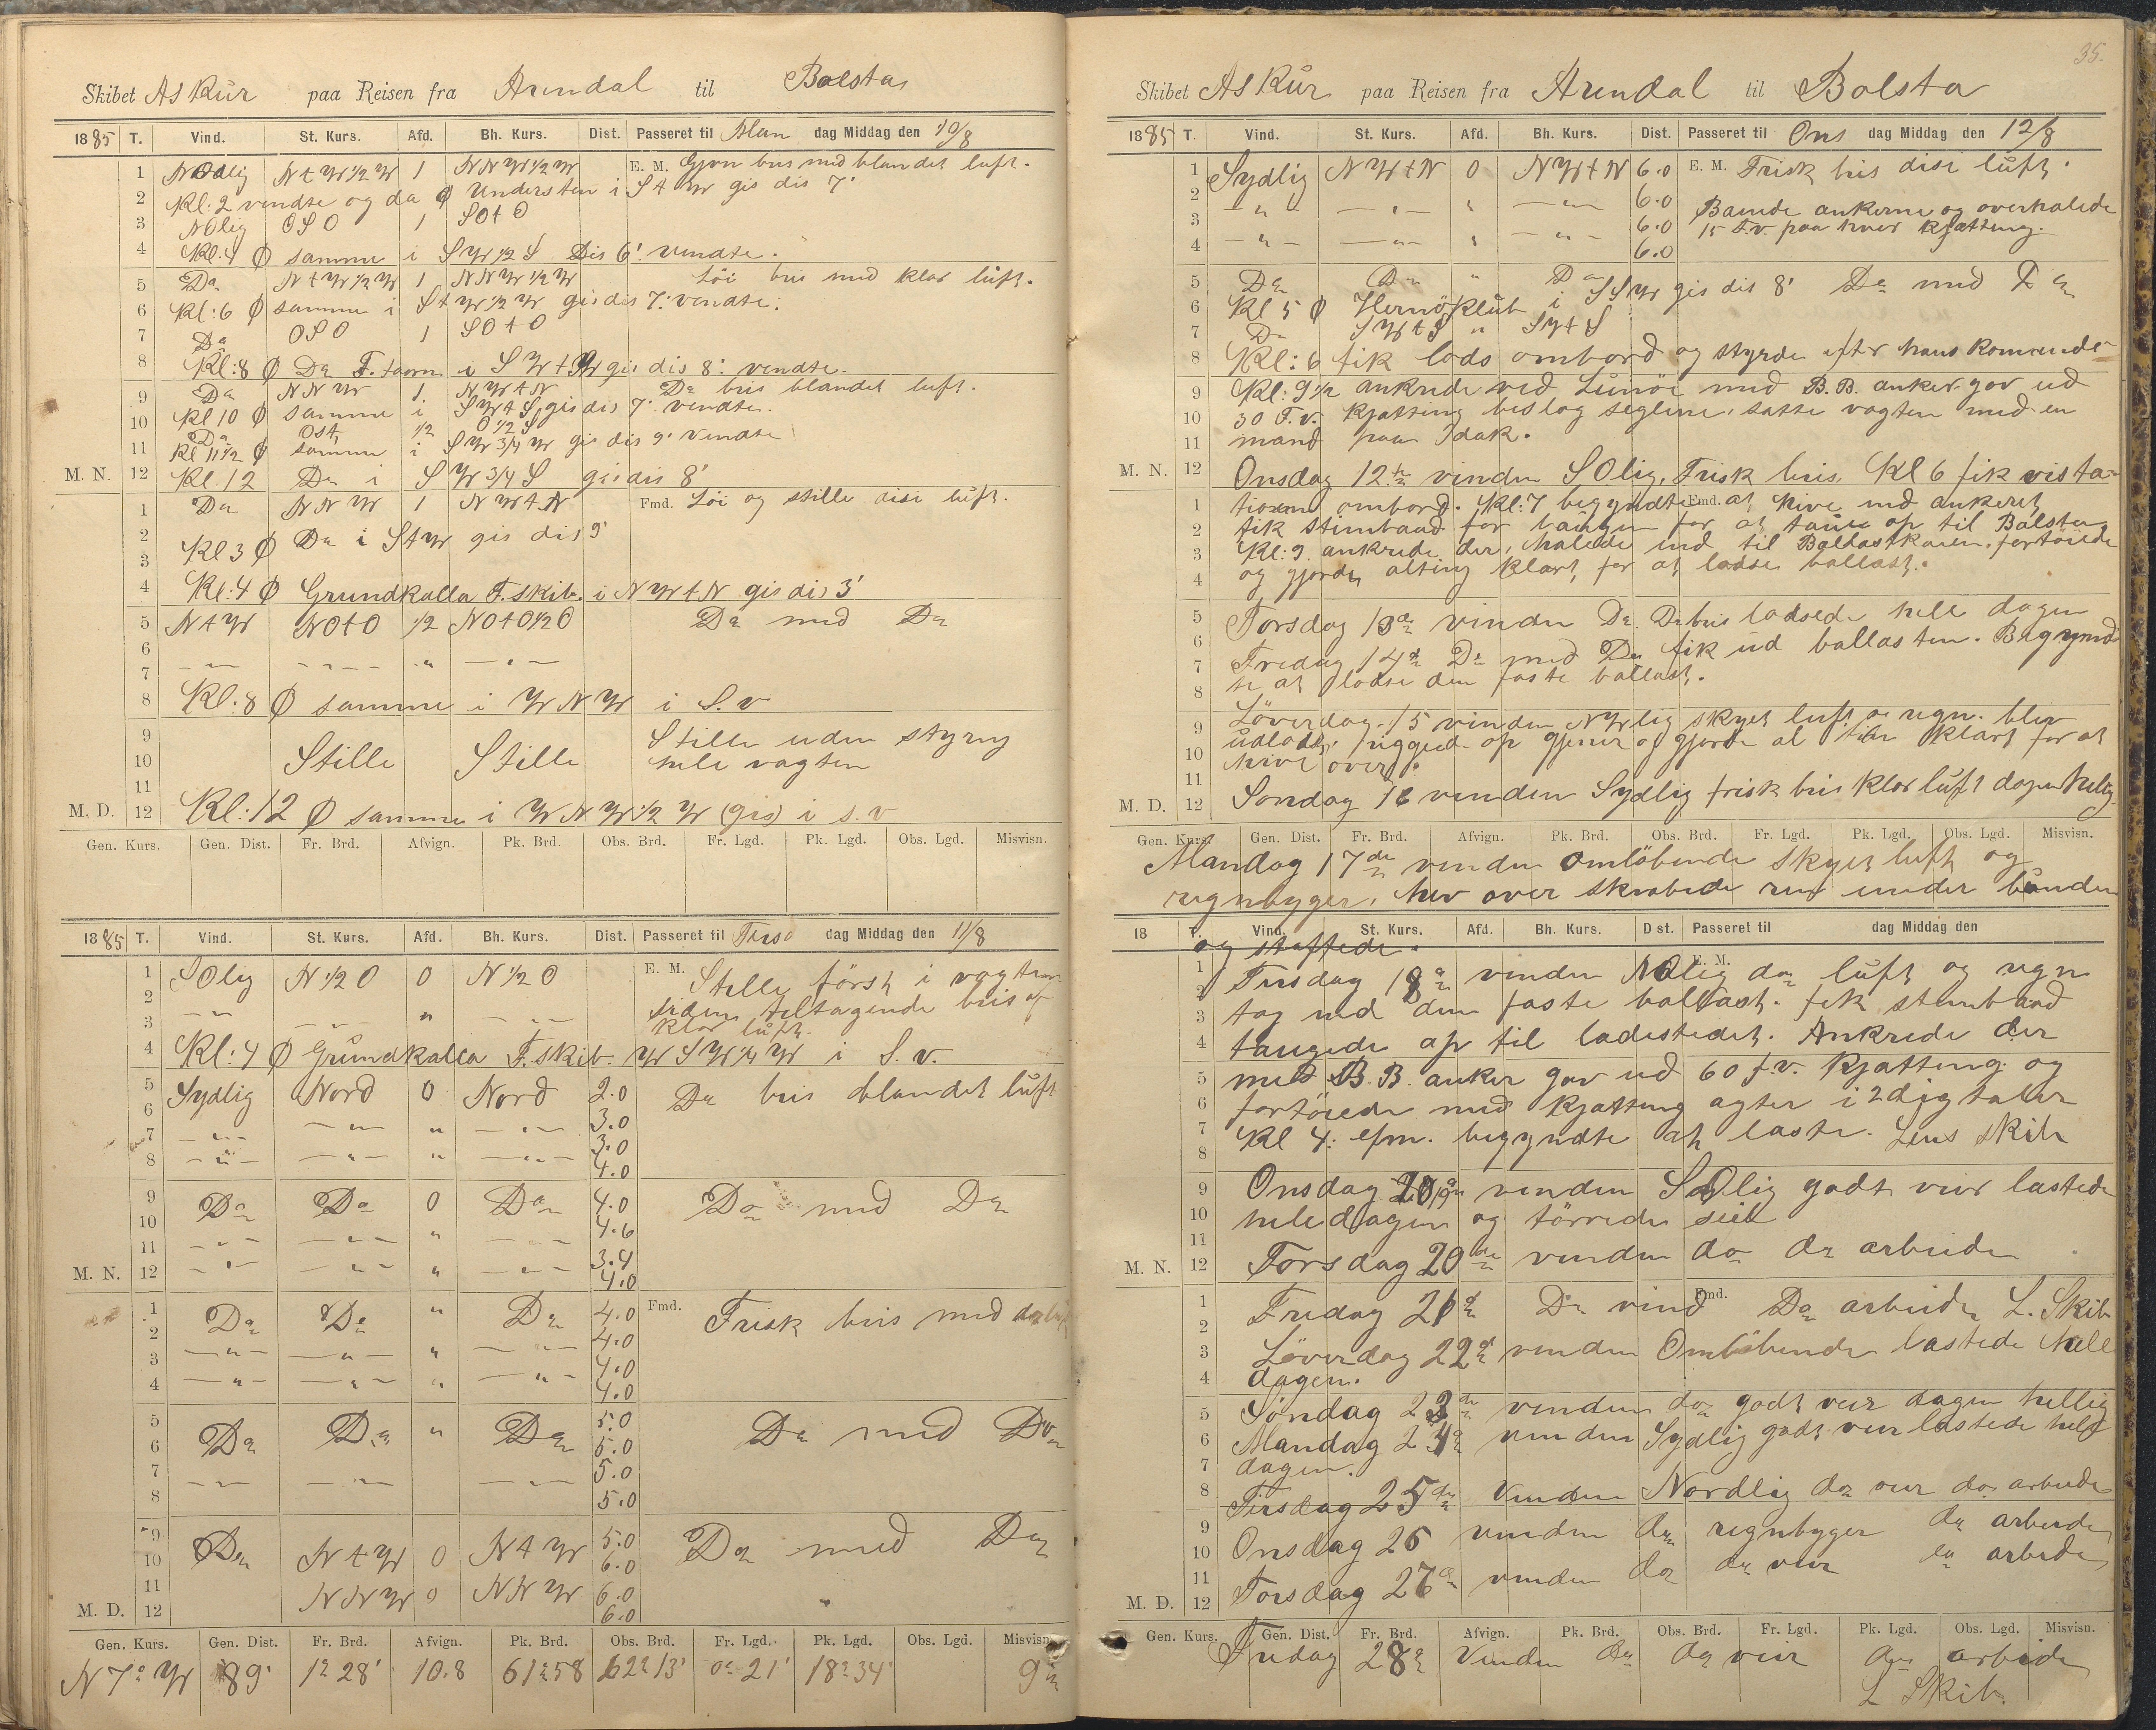 Skibet Askur paa Reisen fra Arendal til Bolsta
1885 T. Vind. St. Kurs. Afd. Bh. Kurs. Dist. Passeret til Man dag Middag den 10/8
1 NOdlig N t W 1/2 W 1 NNW 1/2 W E. M. Gjvn bris med blandet luft.
2 Kl: 2 vendte og da Ø Understen i S t W gis dis 7'
3 NOlig OSO 1 SOtO
4 Kl. 4 Ø samme i SW 1/2 S Dis 6' vendte.
5 Do N t W 1/2 W 1 NNW 1/2 W Löi bris med klar luft.
6 Kl: 6 Ø samme i S t W 1/2 W gis dis 7' vendte.
7 Do OSO 1 SOtO
8 Kl: 8 Ø Do F. taarn i SWtW gis dis 8' vendte.
9 Do NNW 1 NWtN Do bris blandet luft.
10 Kl 10 Ø samme i SWtS gis dis 7' vendte.
Do Ost 1/2 O 1/2 S
11 Kl 11 1/2 Ø samme i SW 3/4 W gis dis 9' vendte
M. N. 12 Kl. 12 Do i SW 3/4 S gis dis 8'
1 Do NNW 1 NWtN Fmd. Löi og stille disi luft.
2
3 Kl 3 Ø Do i StW gis dis 9'
4 Kl: 4 Ø Grundkalla F. skib. i NWtN gis dis 3'
5 NtW NOtO 1/2 NOtO 1/2 O Do med Do
6
7
8 Kl: 8 Ø samme i WNW i S. v
9 Stille uden styring
10 Stille Stille hele vagten
11
M. D. 12 Kl: 12 Ø samme i WNW 1/2 W (gis) i s. v
Gen. Kurs. Gen. Dist. Fr. Brd. Afvign. Pk. Brd. Obs. Brd. Fr. Lgd. Pk. Lgd. Obs. Lgd. Misvisn.
1885 T. Vind. St. Kurs. Afd. Bh. Kurs. Dist. Passeret til Tirs dag Middag den 11/8
1 SOlig N 1/2 O 0 N 1/2 O E. M. Stille först i vagten
2 siden tiltagende bris af
3 klar luft.
4 Kl: 4 Ø Grundkalla F. skib. WSW 1/4 W i S. v.
5 Sydlig Nord 0 Nord 2.0 Do bris blandet luft
6 3.0
7 3.0
8 4.0
9 Do Do 0 Do 4.0 Do med Do
10 4.6
11 3.4
M. N. 12 4.0
1 Do Do " Do 4.0 Fmd. Frisk bris med do luft
2 4.0
3 4.0
4 4.0
5 Do Do " Do 5.0 Do med Do
6 5.0
7 5.0
8 5.0
9 Do NtW 0 NtW 5.0 Do med Do
10 6.0
11 NNW 0 NNW 6.0
M. D. 12 6.0
Gen. Kurs. Gen. Dist. Fr. Brd. Afvign. Pk. Brd. Obs. Brd. Fr. Lgd. Pk. Lgd. Obs. Lgd. Misvisn.
N 7° W 89' 1° 28' 10.8 61° 58 62° 13' 0° 21' 18° 34' 9°
35.
Skibet Askur paa Reisen fra Arendal til Bolsta
1885 T. Vind. St. Kurs. Afd. Bh. Kurs. Dist. Passeret til Ons dag Middag den 12/8
1 Sydlig NWtN 0 NWtN 6.0 E. M. Frisk bris disi luft.
2 6.0 ankerne og overhalede
3 6.0 15 F.v. paa hver Kjætting.
4 6.0
5 Do Do " Do Do med Do
6 Kl 5 Ø Hernö Klub i SSW gis dis 8'
7 Do SWtS " SWtS
8 Kl: 6 fik lods ombord og styrde efter hans Komando
9 Kl: 9 1/2 ankrede ved Lunöe med B.B. anker gav ud
10 30 F.v. Kjatting beslog seglene, satte vagten med en
11 mand paa dæk.
M. N. 12 Onsdag 12te vinden SOlig. Frisk bris. Kl 6 fik visita-
1 tionen ombord. Kl: 7 begyndte Fmd. at hive ind ankeret
2 fik stimbaad for bougen for at taue op til Bolsta
3 Kl: 9 ankrede der, halede ind til Ballastkaien, fortöiede
4 og gjorde alting klart for at lodse ballast.
5 Torsdag 13de vinden Do Do bris lodsede hele dagen
6 Fredag 14de Do med Do fik ud ballasten. Begynd
7 te at lodse den faste ballast.
8
9 Löverdag 15 vinden NWlig skyet luft o regn. blev
10 udlods, riggede op gjener og gjorde al ting klart for at
11 hive over.
M. D. 12 Söndag 16 vinden Sydlig frisk bris klar luft dagen helig.
Gen. Kurs. Gen. Dist. Fr. Brd. Afvign. Pk. Brd. Obs. Brd. Fr. Lgd. Pk. Lgd. Obs. Lgd. Misvisn.
Mandag 17de vinden omlöbende skyet luft og
regnbyger. hev over skrabede ren under bunden
18 T. Vind. St. Kurs. Afd. Bh. Kurs. D st. Passeret til dag Middag den
og
1 Tirsdag 18de vinden NOlig do luft og regn E. M.
2
3 tog ind den faste ballast. fik stimbaad
4 taugede op til ladestedet. Ankrede der
5 med B. B. anker gav ud 60 f.v. Kjatting og
6 fortöiede med Kjatting agter i 2
7 Kl 4: efm. begyndte at laste. Lens skib
8
9 Onsdag vinden SOlig godt veir lastede
10 hele dagen og törrede seil
11
M. N. 12 Torsdag 20de vinden do do arbeide
1 Fredag 21de Do vind Fmd. Do arbeide L. Skib
2
3 Löverdag 22de vinden Omlöbende lastede hele
4 dagen.
5 Söndag 23de vinden do godt veir dagen hellig
6 Mandag 24de vinden Sydlig godt veir lastede hele
7 dagen.
8 Tirsdag 25de Vinden Nordlig do veir do arbeide
9
10 Onsdag 26 vinden do regnbyger do arbeide
11
M. D. 12 Torsdag 27de vinden do do veir do arbeide
Gen. Kurs. Gen. Dist. Fr. Brd. Afvign. Pk. Brd. Obs. Brd. Fr. Lgd. Pk. Lgd. Obs. Lgd. Misvisn.
Fredag 28de Vinden do do veir do arbeide
L Skib.